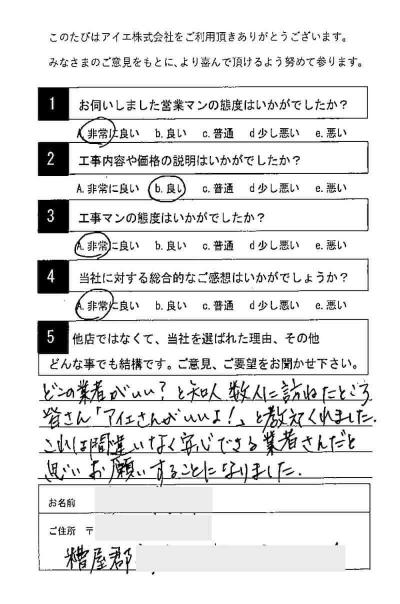 このたびはアイエ株式会社をご利用頂きありがとうございます。
みなさまのご意見をもとに、より喜んで頂けるよう努めて参ります。
1 お伺いしました営業マンの態度はいかがでしたか?
A.非常に良い b.良い c.普通 d少し悪い e.悪い
2 工事内容や価格の説明はいかがでしたか?
A.非常に良い b.良い c.普通 d少し悪い e.悪い
3 工事マンの態度はいかがでしたか?
A.非常に良い b.良い c.普通 d少し悪い e.悪い
4 当社に対する総合的なご感想はいかがでしょうか?
A.非常に良い b.良い c.普通 d少し悪い e.悪い
5 他店ではなくて、当社を選ばれた理由、その他
どんな事でも結構です。ご意見、ご要望をお聞かせ下さい。
どこの業者がいい?と知人数人に訪ねたところ
皆さん「アイエさんがいいよ!」と教えてくれました.
これは間違いなく安心できる業者さんだと
思いお願いすることになりました.
お名前
ご住所 〒
糟屋郡